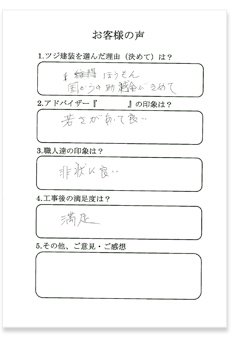 お客様の声
1.ツジ建装を選んだ理由（決めて）は？
国からの補助金が きめて
2.アドバイザー『　　　』の印象は？
若さがあって良い
3.職人達の印象は？
非常に良い
4.工事後の満足度は？
満足
5.その他、ご意見・ご感想